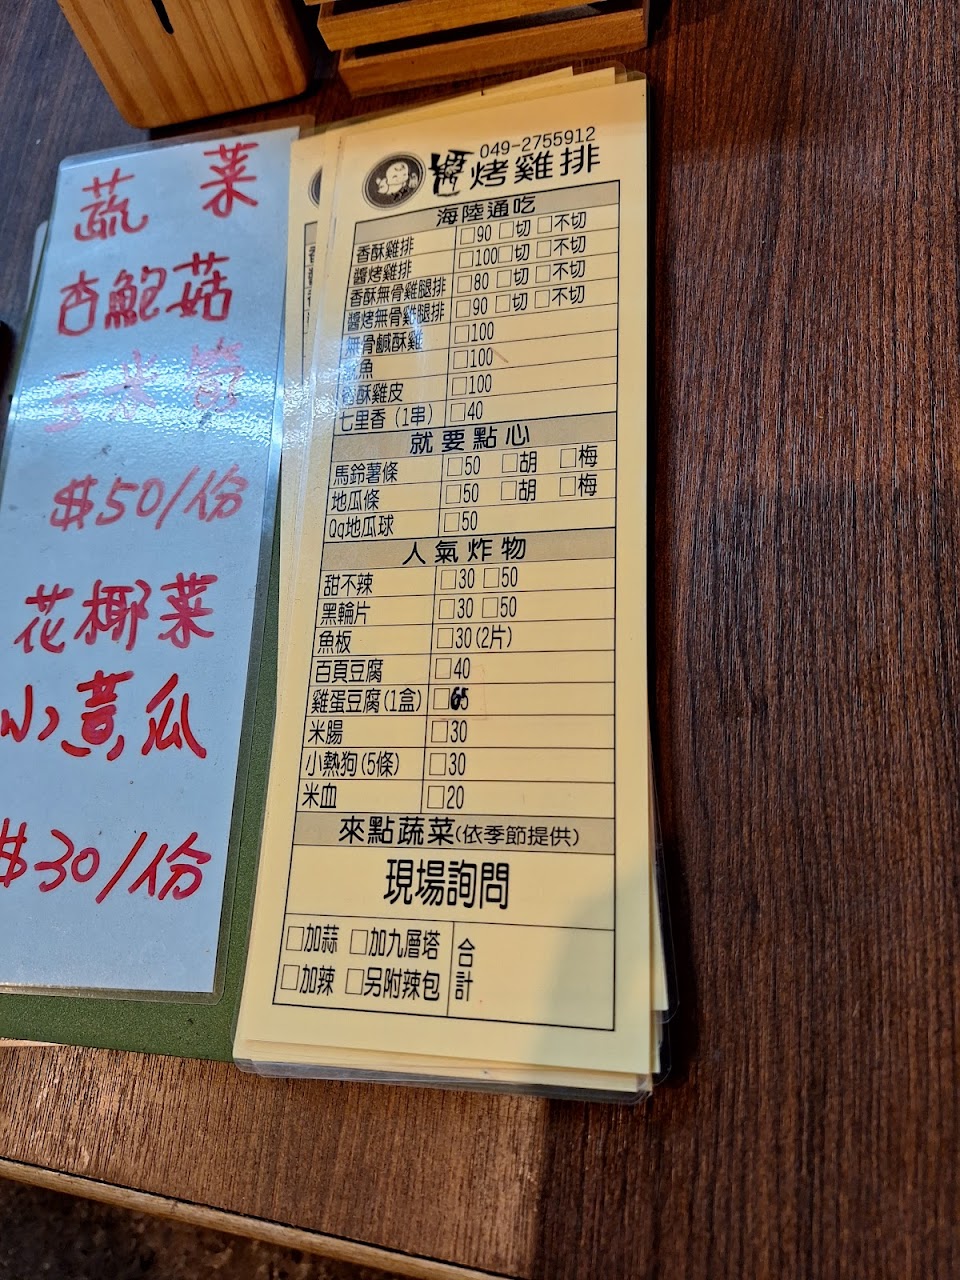 蔬菜
杏鮑菇
玉米筍
$50/份
花椰菜
小黃瓜
$30/份
049-2755912
醬烤雞排
海陸通吃
香酥雞排 □90 □切 □不切
醬烤雞排 □100 □切 □不切
香酥無骨雞腿排 □80 □切 □不切
醬烤無骨雞腿排 □90 □切 □不切
無骨鹹酥雞 □100
魚 □100
酥雞皮 □100
七里香(1串) □40
就要點心
馬鈴薯條 □50 □胡 □梅
地瓜條 □50 □胡 □梅
Qq地瓜球 □50
人氣炸物
甜不辣 □30 □50
黑輪片 □30 □50
魚板 □30(2片)
百頁豆腐 □40
雞蛋豆腐(1盒) □65
米腸 □30
小熱狗(5條) □30
米血 □20
來點蔬菜(依季節提供)
現場詢問
□加蒜 □加九層塔
□加辣 □另附辣包
合計